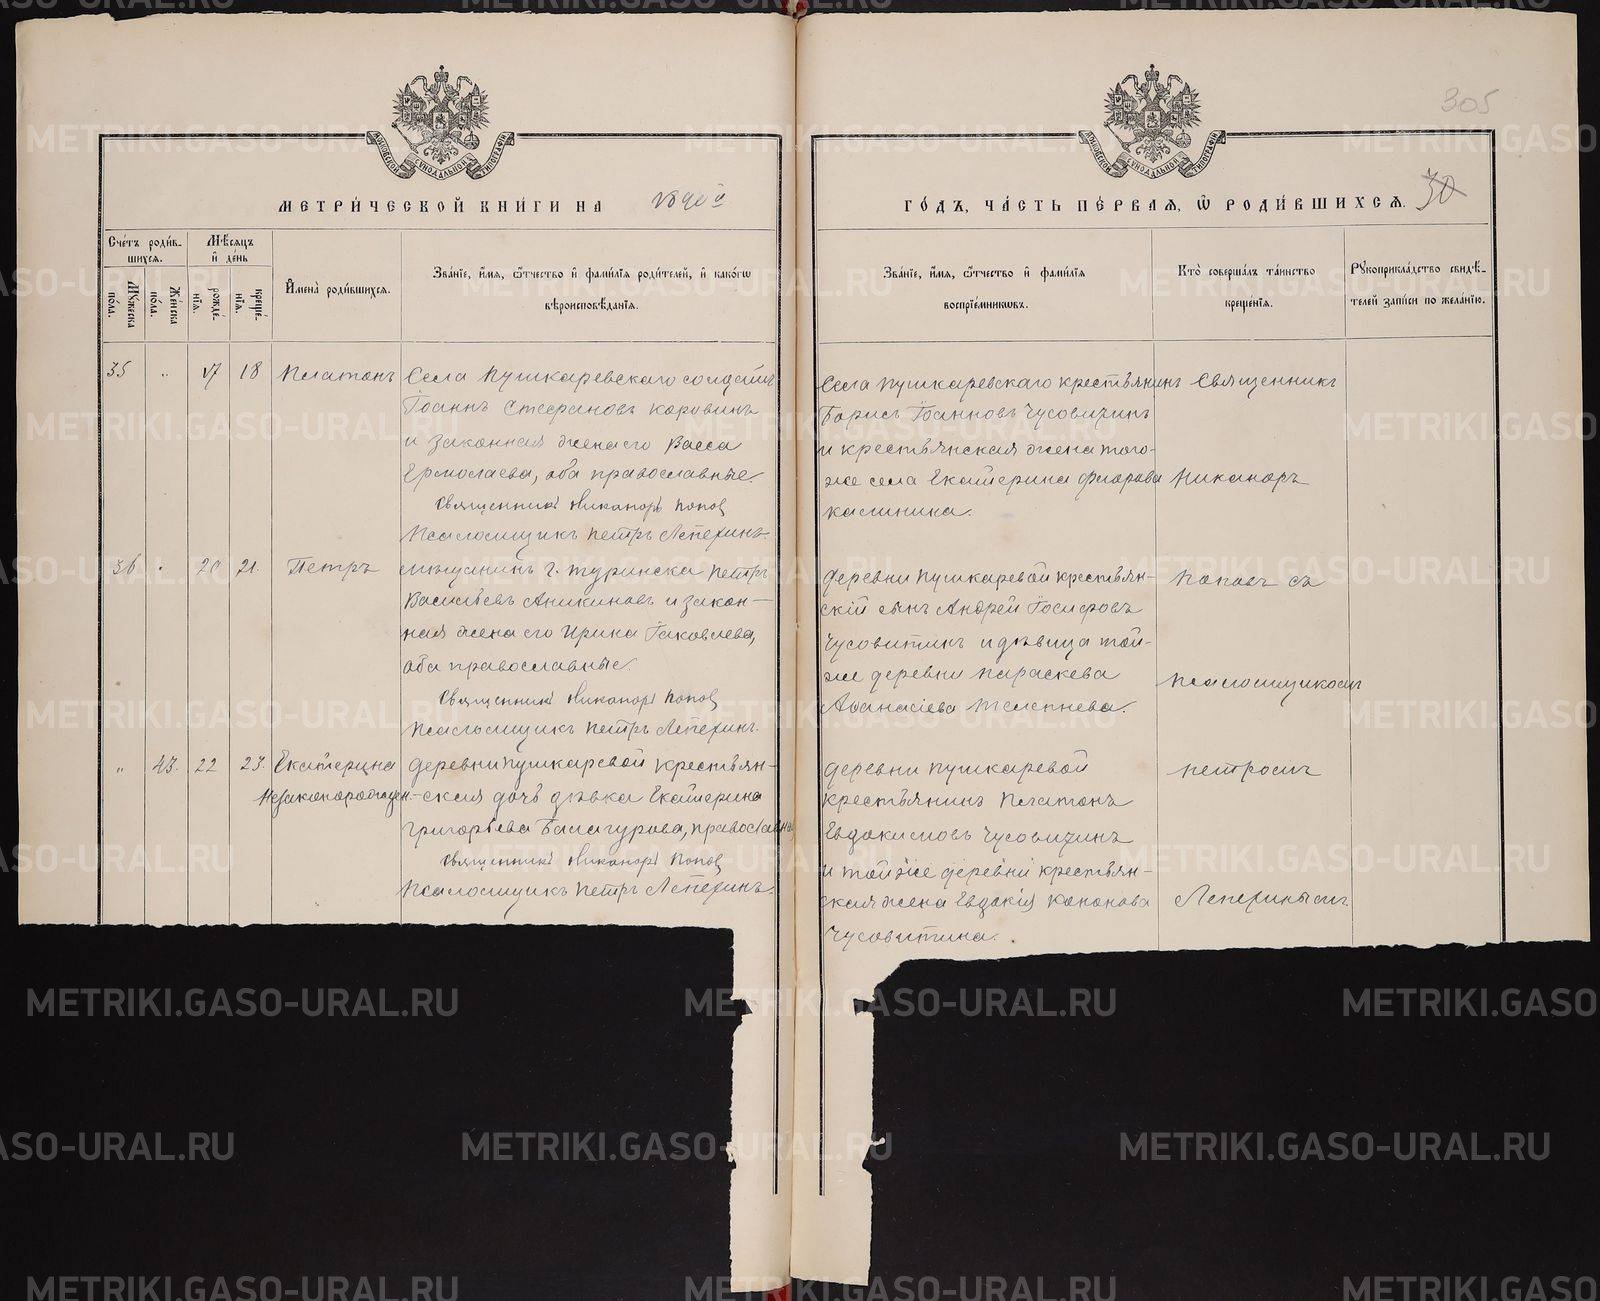 305
30
МЕТРИ́ЧЕСКОЙ КНИ́ГИ НА 1890 й
ГО́ДЪ, ЧА́СТЬ ПЕ́РВАЯ, Ѿ РОДИ́ВШИХСѦ.
Сче́тъ роди́в-
шихсѧ.
Мѣ́сѧцъ
и҆ де́нь
Мꙋ́жеска
по́ла.
Же́нска
по́ла.
рожде́-
нїѧ.
креще́-
нїѧ.
И҆мена̀ роди́вшихсѧ.
Зва́нїе, и҆́мѧ, ѻ҆́тчество и҆ фамѝлїѧ роди́телей, и҆ како́гѡ
вѣроисповѣ́данїѧ.
Зва́нїе, и҆́мѧ, ѻ҆́тчество и҆ фамѝлїѧ
воспрїе́мниковъ.
Кто̀ соверша́лъ та́инство
креще́нїѧ.
Рꙋкоприкла́дство свидѣ́-
телей за́писи по жела́нїю.
35 „ 17 18 Платонъ
Села Пушкаревскаго солдатъ
Іоаннъ Стефановъ Коровинъ
и законная жена его Васса
Ермолаева, оба православные.
Священникъ Никаноръ Попов
Псаломщикъ Петръ Леперинъ.
Села Пушкаревскаго крестьянинъ
Борисъ Іоанновъ Чусовитинъ
и крестьянская жена того-
же села Екатерина Флорова
Калинина.
Священникъ
Никаноръ
36 „ 20 21. Петръ
Мещанинъ г. Туринска Петръ
Васильевъ Аникиновъ и закон-
ная жена его Ирина Іаковлева,
оба православные.
Священникъ Никаноръ Попов
Псаломщикъ Петръ Леперинъ.
Деревни Пушкаревой крестьян-
скій сынъ Андрей Іосифовъ
Чусовитинъ и дѣвица той-
же деревни Параскева
Афанасіева Телепнева.
Поповъ съ
Псаломщикомъ
„ 43. 22 23. Екатерина
Незаконорожден.
Деревни Пушкаревой крестьян-
ская дочь дѣвка Екатерина
Григорьева Балагурова, православна
Священникъ Никаноръ Попов
Псаломщикъ Петръ Леперинъ.
Деревни Пушкаревой
крестьянинъ Платонъ
Евдокимовъ Чусовитинъ
и той же деревни крестьян-
ская жена Евдокія Кононова
Чусовитина.
Петромъ
Леперинымъ.
METRIKI.GASO-URAL.RU